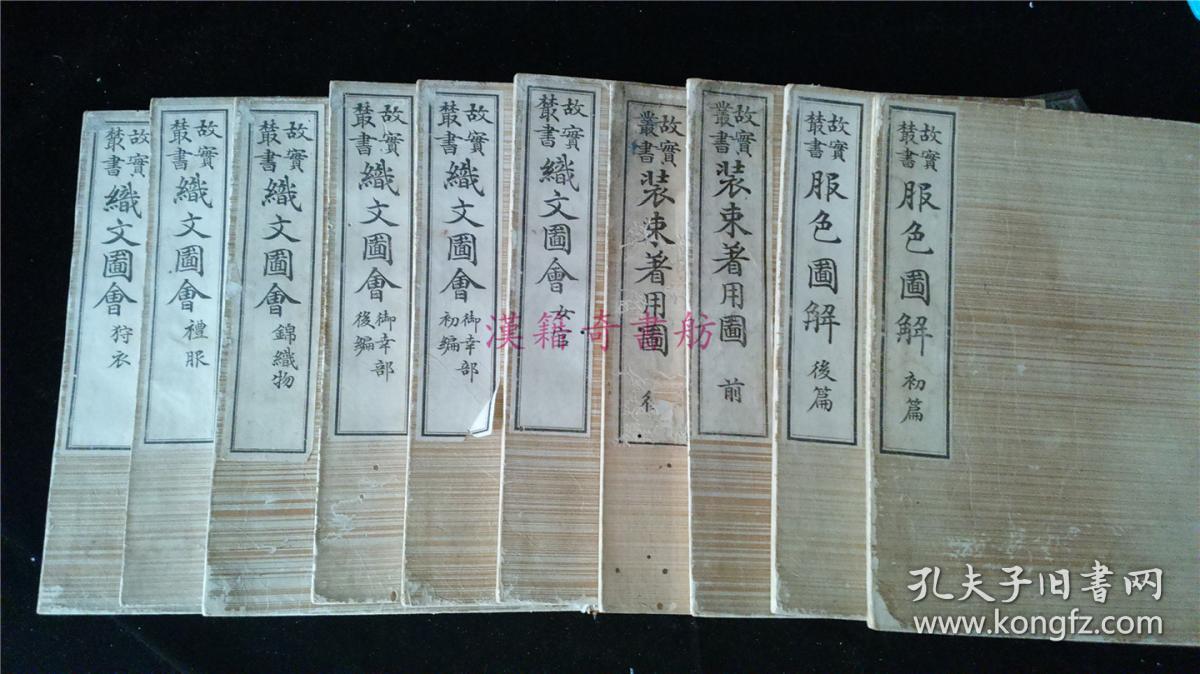 故實叢書 服色圖解 初篇
故實叢書 服色圖解 後篇
故實叢書 装束著用圖 前
故實叢書 装束著用圖
故實叢書 織文圖會 女官
故實叢書 織文圖會 御幸部 初編
故實叢書 織文圖會 御幸部 後編
故實叢書 織文圖會 錦織物
故實叢書 織文圖會 禮服
故實叢書 織文圖會 狩衣
漢籍奇書舫
孔夫子旧书网
www.kongfz.com